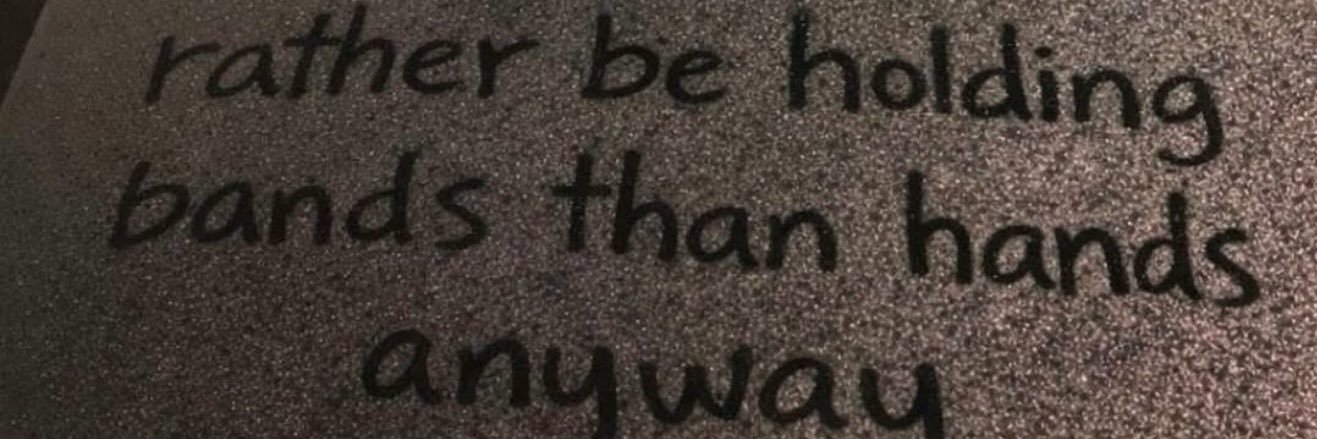 rather be holding
bands than hands
anyway